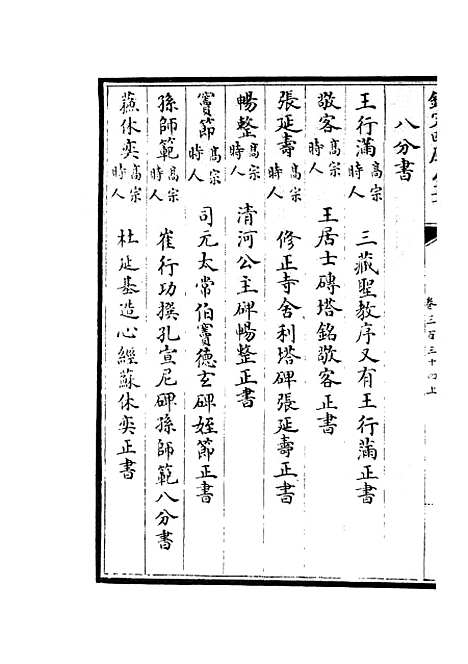 八分書
王行滿高宗時人　三藏聖教序又有王行滿正書
敬客高宗時人　王居士磚塔銘敬客正書
張延壽高宗時人　修正寺舍利塔碑張延壽正書
暢整高宗時人　清河公主碑暢整正書
竇節高宗時人　司元太常伯竇德玄碑姪節正書
孫師範高宗時人　崔行功撰孔宣尼碑孫師範八分書
蘇休奕高宗時人　杜延基造心經蘇休奕正書
卷三百三十四上